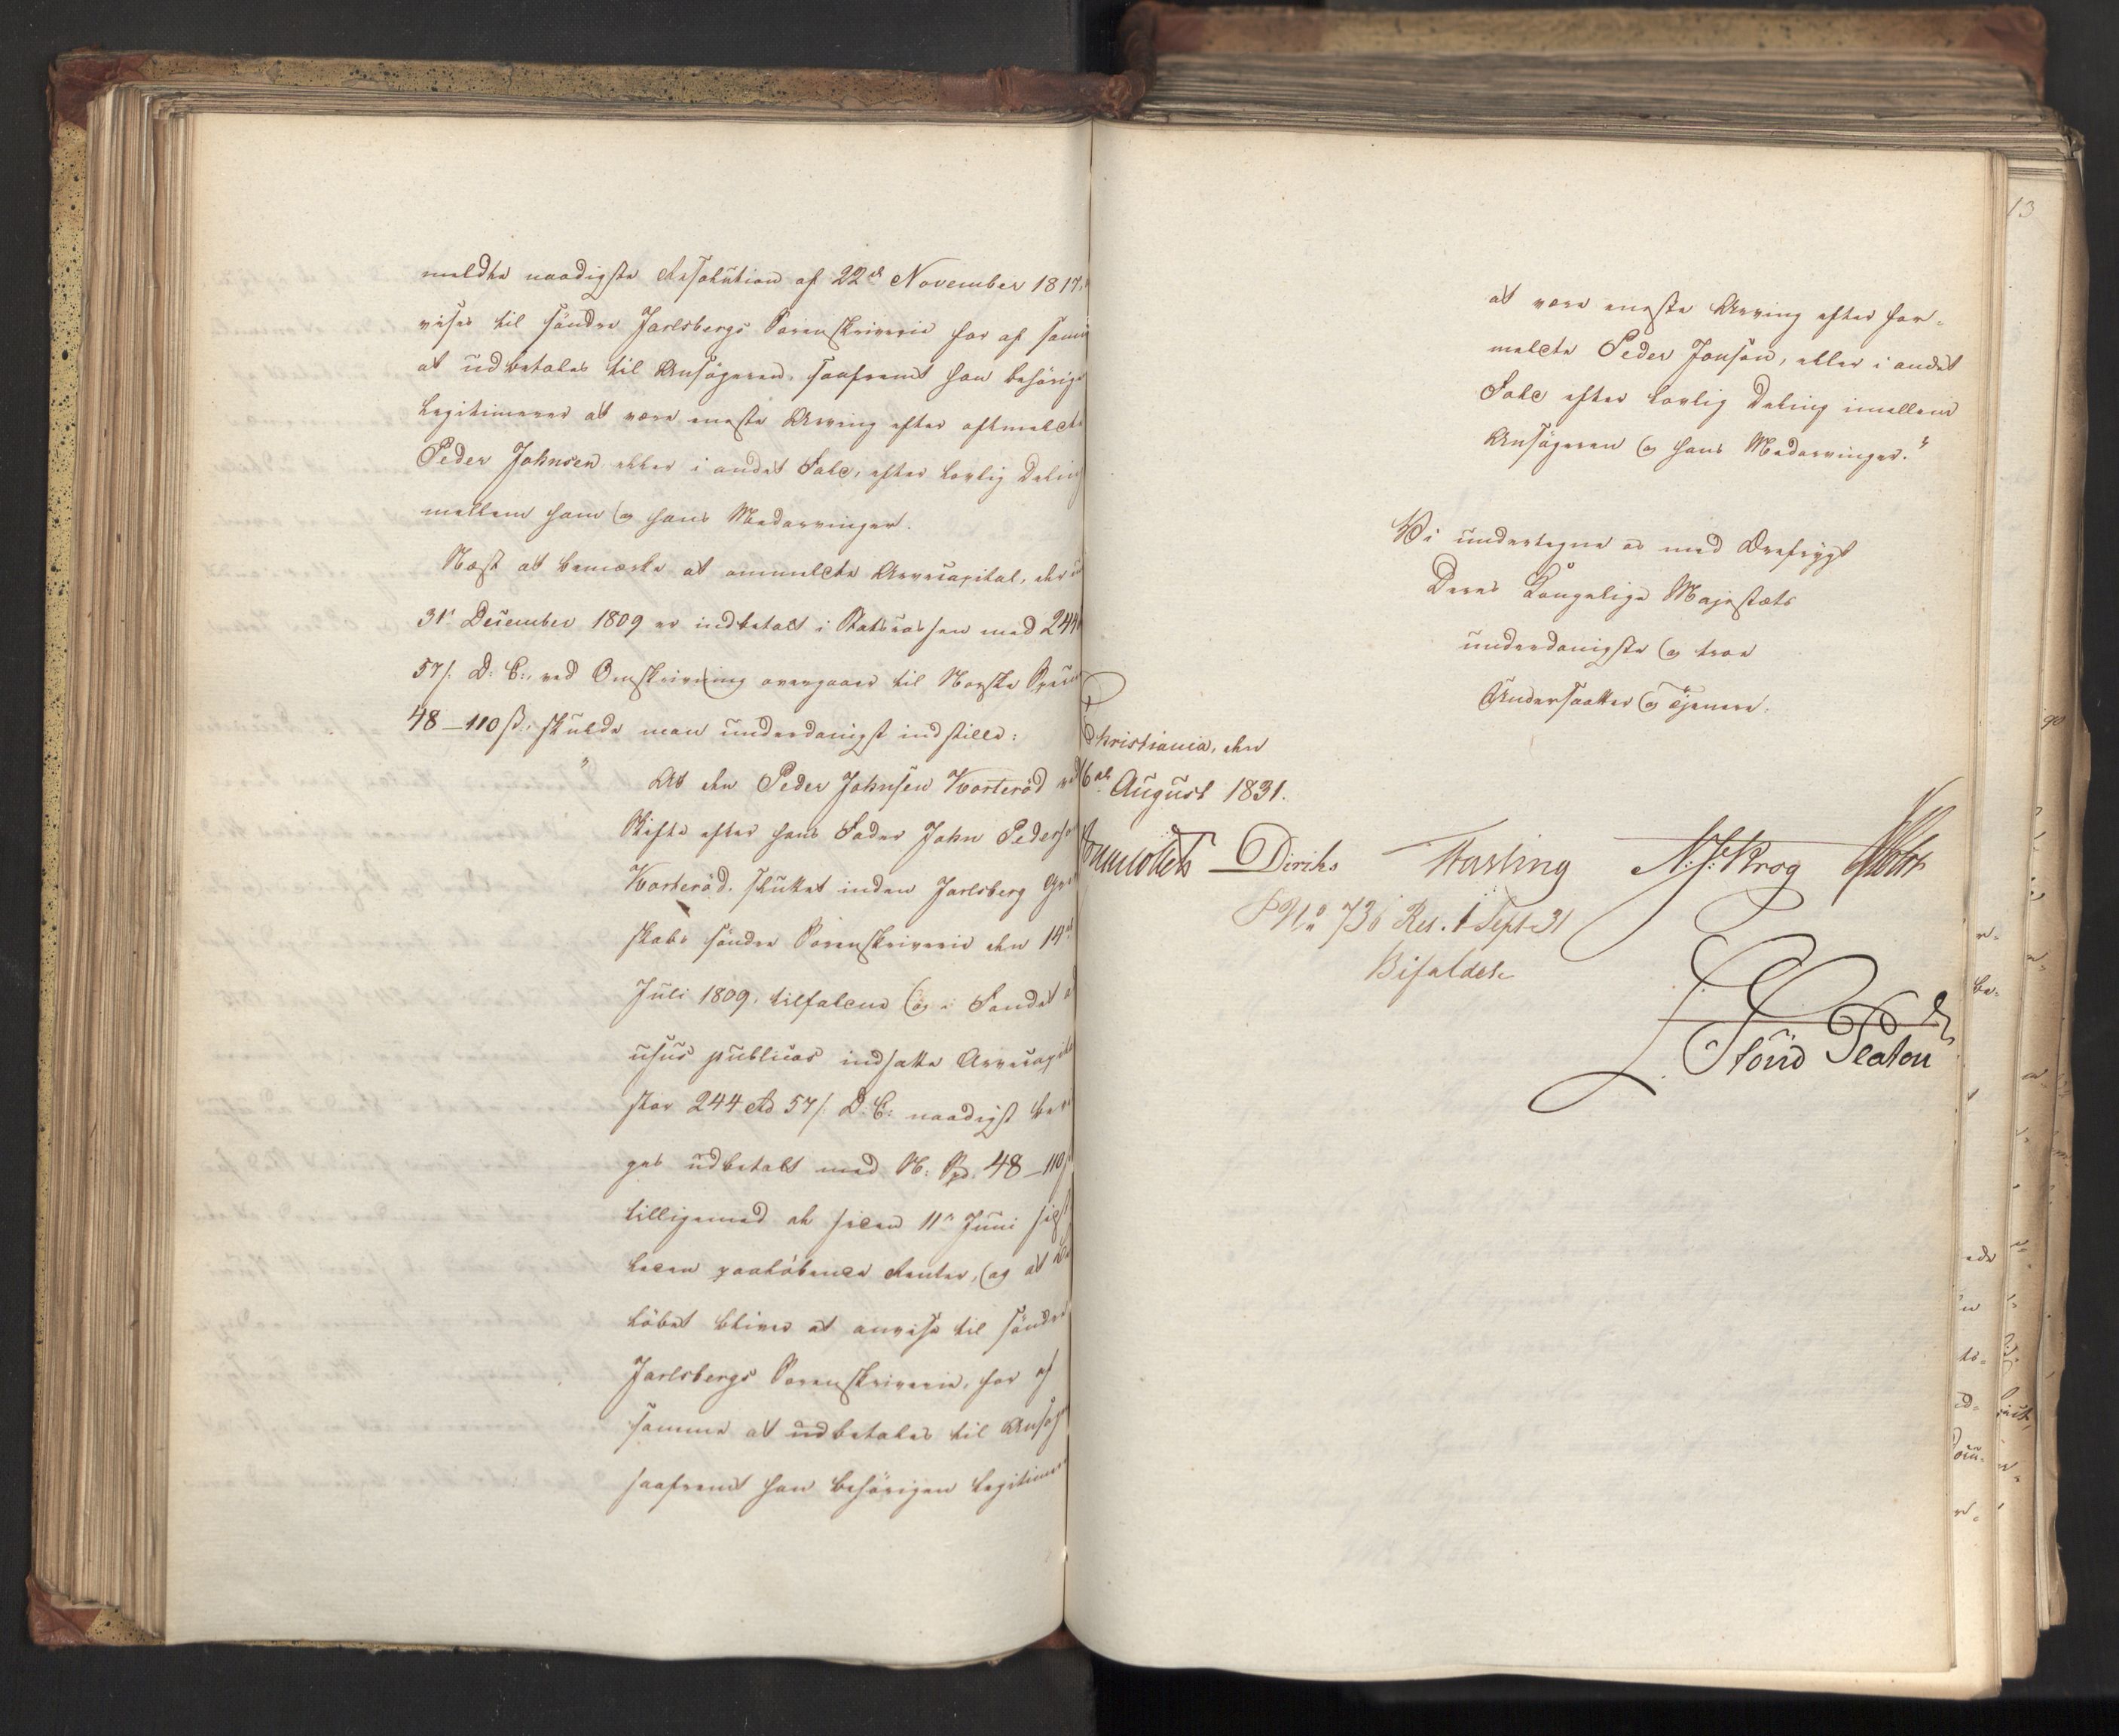 meldte naadigste Resolution af 22d November 1817,
vises til søndre Jarlsbergs Sorenskriverie for af samme
at udbetales til Ansøgeren, saafremt han behørigen
legitimerer at være eneste Arving efter ommeldte
Peder Johnsen eller i andet Fald, efter lovlig Deling
mellem ham og hans Medarvinger.
Næst at bemærke at ommeldte Arvecapital, der
31t December 1809 er indbetalt i Statscassen med 244
57/. D: C:, ved Omskrivning overgaaer til Norske Species
48 – 110 ß: skulde man underdanigst indstille:
"At den Peder Johnsen Korteröd ved
Skifte efter hans Fader John Pedersen
Korteröd, sluttet inden Jarlsberg Grev-
skabs søndre Sorenskriverie den 14d
Juli 1809, tilfaldne og i Fondet ad
usus publicos indsatte Arvecapital
stor 244 Rd 57/. D: C: naadigst bevil-
ges udbetalt med N: Spd. 48 – 110
tilligemed de siden 11t Juni sidst-
leden paaløbende Renter, og at Be-
løbet bliver at anvise til søndre
Jarlsbergs Sorenskriverie, for af
samme at udbetales til Ansøgeren
saafremt han behørigen legitimerer
at være eneste Arving efter for-
meldte Peder Jonsen, eller i andet
Fald efter lovlig Deling imellem
Ansøgeren og hans Medarvinger."
Vi undertegne os med Ærefrygt
Deres Kongelige Majestæts
underdanigste og troe
Undersaatter og Tjenere.
Christiania, den
16de August 1831.
Diriks Fasting N. J. Krog
P No 736 Res. 1 Sept. 31
Bifaldes
Stoud Platou
13